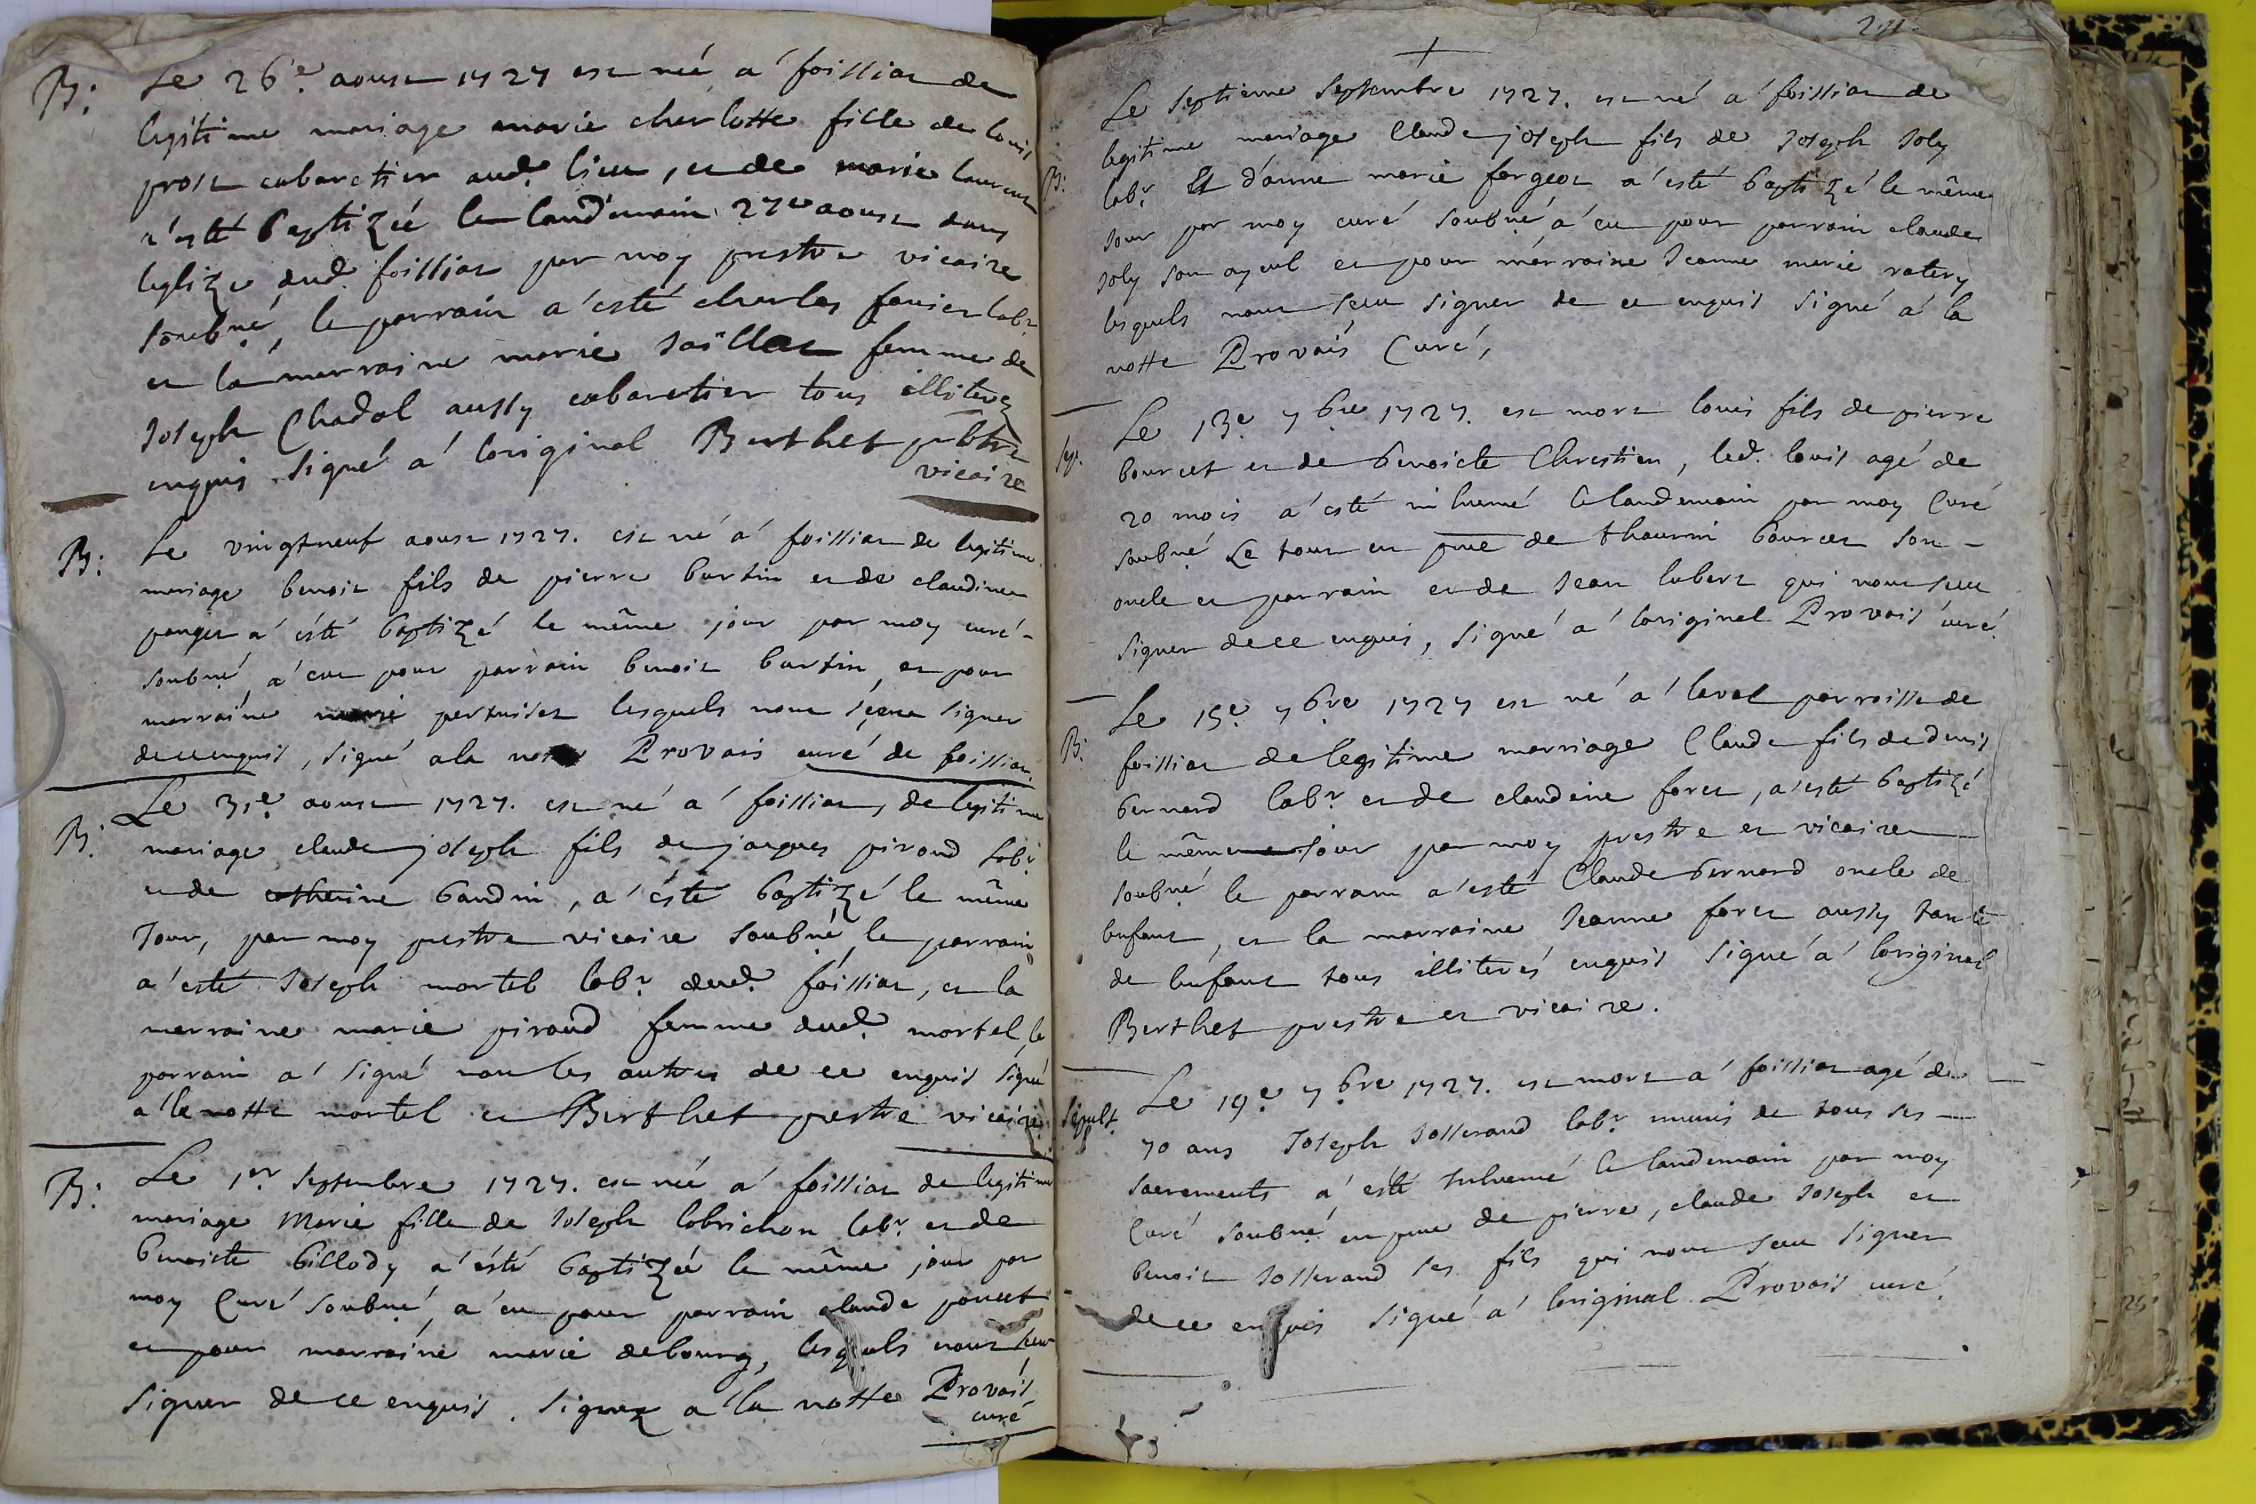 B:
Le 26e. aoust 1727 est neé a foissiat de
legitime mariage marie charlotte fille de louis
prost cabaretier aud. lieu, et de marie laurent
a esté baptizeé le landemain 27e aoust dans
leglize dud. foissiat par moy prestre vicaire
soubné, le parrain a esté charles favier labr.
et la marraine marie saillat femme de
Joseph Chadal aussy cabaretier tous illiterez
enquis signé a loriginal Berthet pbtre
vicaire
B:
Le vingtneuf aoust 1727. est né a foissiat de legitime
mariage benoit fils de pierre burtin et de claudine
ponget a esté baptizé le même jour par moy curé
soubné, a eu pour parrain benoit burtin, et pour
marraine marie pertuiset lesquels nont sceu signer
de ce enquis, signé a la Provais curé de foissiat.
B:
Le 31e. aoust 1727. est né a foissiat, de legitime
mariage claude joseph fils de jaques piroud labr.
et de catherine gaudin, a esté baptizé le même
Jour, par moy prestre vicaire soubné, le parrain
a esté Joseph mortel labr. dud. foissiat, et la
marraine marie piroud femme dud. mortel, le
parrain a signé non les autres de ce enquis signé
a la notte mortel et Berthet prestre vicaire
B:
Le 1er septembre 1727. est neé a foissiat de legitime
mariage Marie fille de Joseph lobrichon labr. et de
benoiste billody a esté baptizeé le même jour par
moy Curé soubné, a eu pour parrain claude poncet
et pour marraine marie debourg, lesquels nont sceu
signer de ce enquis. signez a la notte Provais
curé
+
Le septieme septembre 1727. est né a foissiat de
legitime mariage Claude joseph fils de Joseph Joly
B:
labr. Et d'anne marie fargeot a esté baptizé le même
Jour par moy curé soubné a eu pour parrain claude
Joly son ayeul et pour marraine Jeanne marie ratery
lesquels nont sceu signer de ce enquis signé a la
notte Provais Curé,
Le 13e. 7bre 1727. est mort louis fils de pierre
sep.
bourcet et de benoicte Chrestien, led. louis agé de
20 mois a esté inhumé le landemain par moy Curé
soubné Le tout en pnce de thaurin bourcet son
oncle et parrain et de Jean lubert qui nont sceu
signer de ce enquis, signé a loriginal Provais curé.
Le 15e. 7bre 1727 est né a laval parroisse de
B:
foissiat de legitime marriage Claude fils de denis
bernard labr. et de claudine foret, a esté baptizé
le même jour par moy prestre et vicaire
soubné le parrain a esté Claude bernard oncle de
lenfant, et la marraine Jeanne foret aussy tante
de lenfant tous illiterés enquis signé a loriginal
Berthet prestre et vicaire.
Le 19e. 7bre 1727. est mort a foissiat agé de
sepult.
70 ans Joseph Josserand labr. munis de tous ses
sacrements a esté Inhumé le landemain par moy
Curé soubné en pnce de pierre, claude Joseph et
benoit Josserand ses fils qui nont sceu signer
de ce enquis signé a loriginal Provais curé.